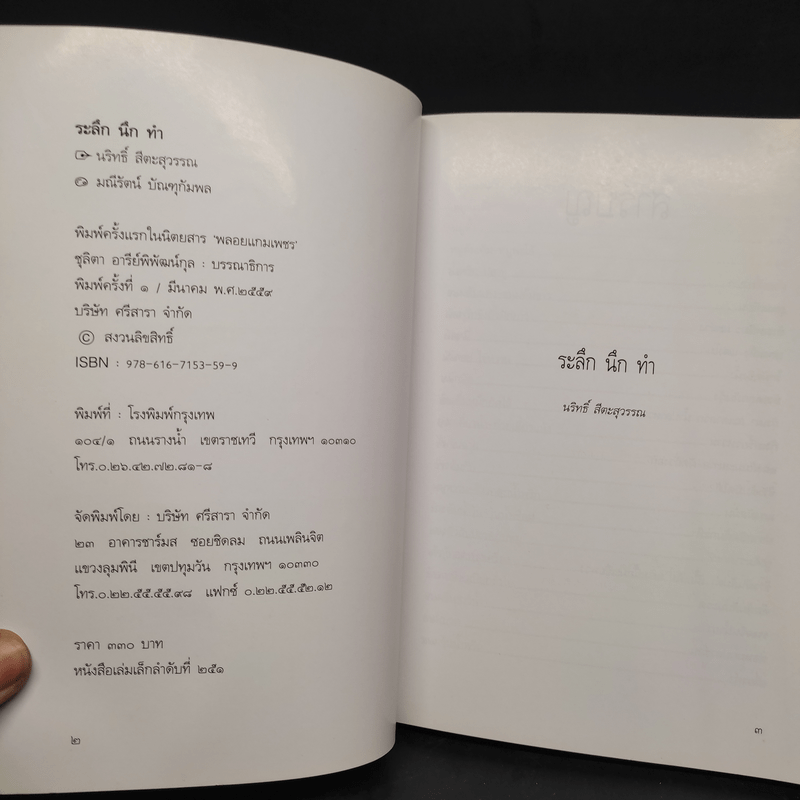 ระลึก นึก ทำ
นริทธิ์ สีตะสุวรรณ
มณีรัตน์ บัณฑุกัมพล
พิมพ์ครั้งแรกในนิตยสาร 'พลอยแกมเพชร'
ชุลิตา อารีย์พิพัฒน์กุล : บรรณาธิการ
พิมพ์ครั้งที่ ๑ / มีนาคม พ.ศ.๒๕๕๙
บริษัท ศรีสารา จำกัด
© สงวนลิขสิทธิ์
ISBN : 978-616-7153-59-9
พิมพ์ที่ : โรงพิมพ์กรุงเทพ
๑๐๔/๑ ถนนรางน้ำ เขตราชเทวี กรุงเทพฯ ๑๐๓๑๐
โทร.๐.๒๖.๔๒.๗๒.๘๑-๘
จัดพิมพ์โดย : บริษัท ศรีสารา จำกัด
๒๓ อาคารชาร์มส ซอยชิดลม ถนนเพลินจิต
แขวงลุมพินี เขตปทุมวัน กรุงเทพฯ ๑๐๓๓๐
โทร.๐.๒๒.๕๕.๕๕.๙๘ แฟกซ์ ๐.๒๒.๕๕.๕๒.๑๒
ราคา ๓๓๐ บาท
หนังสือเล่มเล็กลำดับที่ ๒๕๑
๒
ระลึก นึก ทำ
นริทธิ์ สีตะสุวรรณ
๓